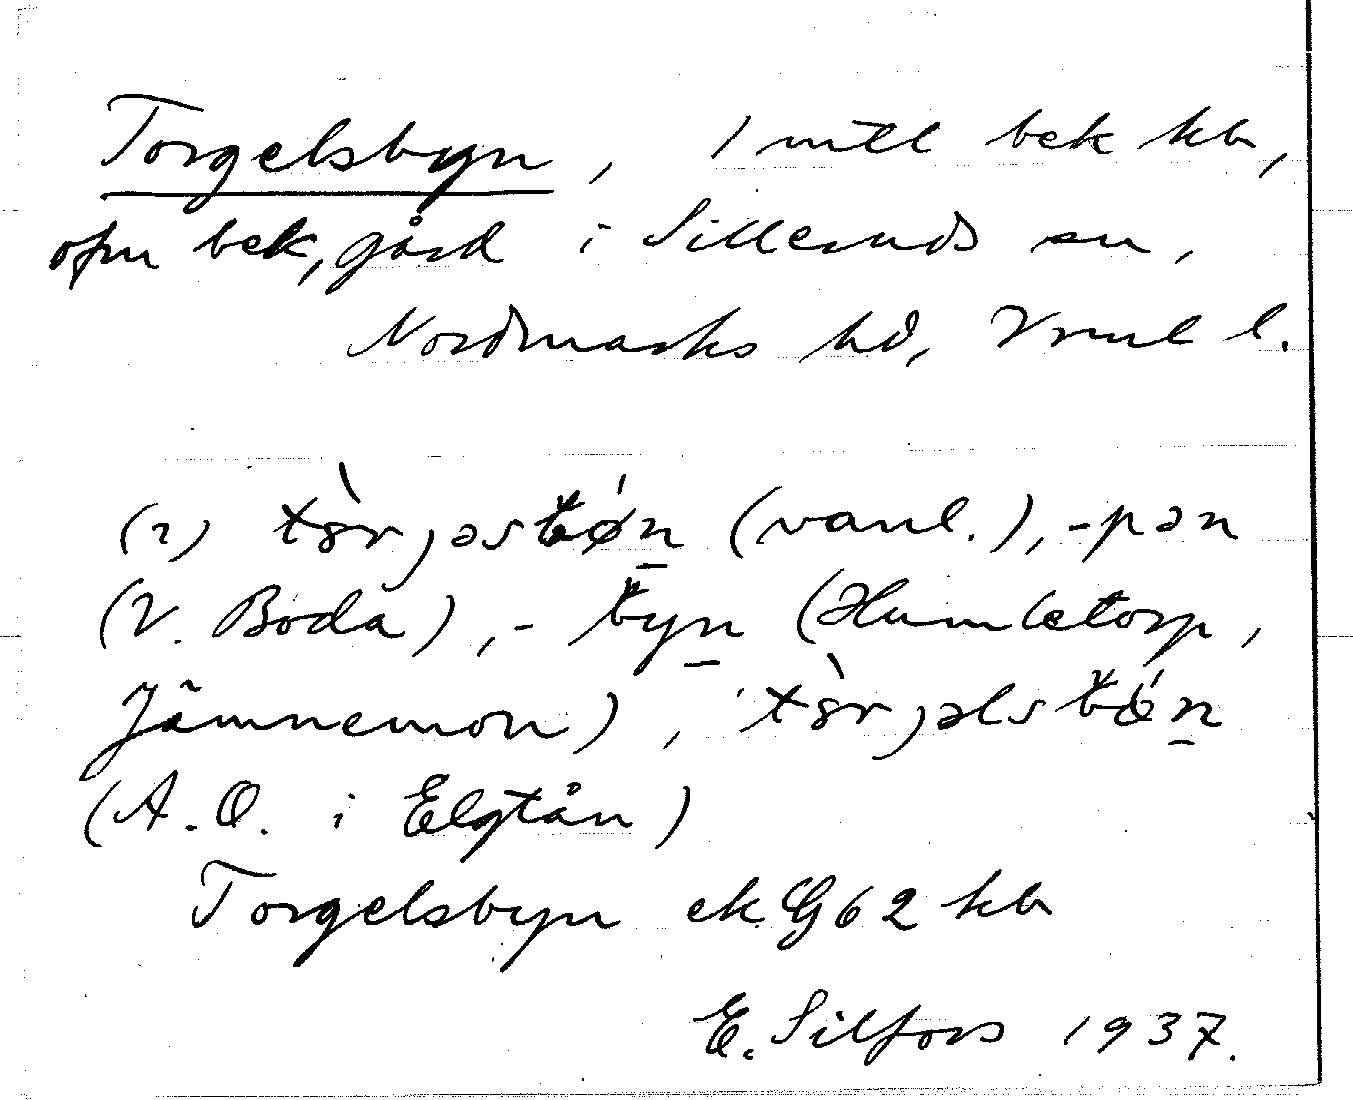 Torgelsbyn, 1 mtl bek kb,
ofm bek, gård i Silleruds sn,
Nordmarks hd, Vrml l.
(vanl.), -pən
(V. Boda), - byn (Humletorp,
Jämnemon),
(A.O. i Elgtån)
Torgelsbyn ek G62 kb
E. Silfors 1937.